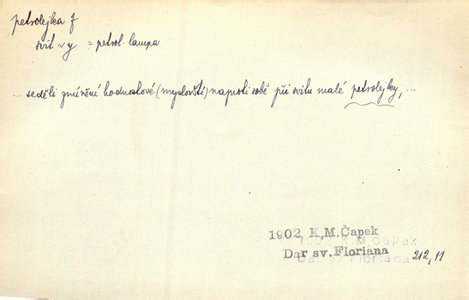 petrolejka f
svít v y = petrol. lampa
... seděli zmínění hodnoslové (myslovští) naproti sobě při svitu malé petrolejky, ...
1902 K.M.Čapek
Dar sv.Floriana 212,11